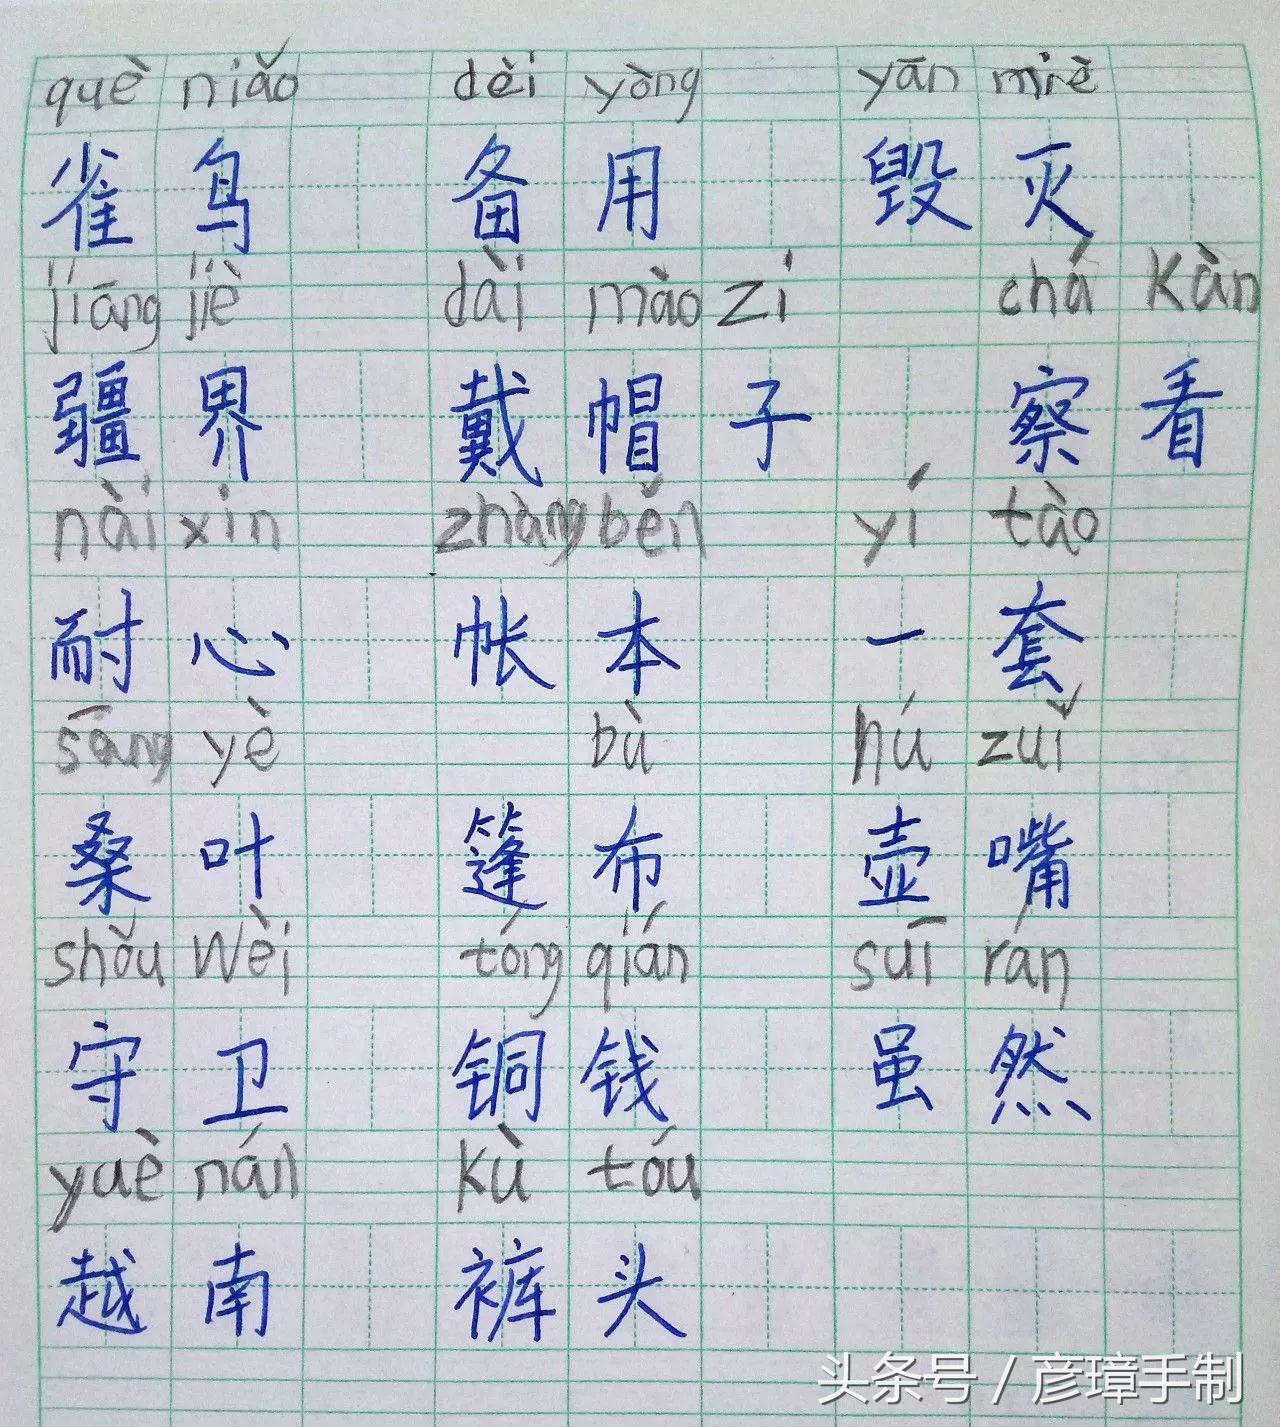 què niǎo dèi yòng yān miè
雀鸟 备用 毁灭
jiāng jiè dài mào zi chá kàn
疆界 戴帽子 察看
nài xin zhàng běn yí tào
耐心 帐本 一套
sāng yè bù hú zuǐ
桑叶 篷布 壶嘴
shǒu wèi tóng qián suī rán
守卫 铜钱 虽然
yuè nán kù tóu
越南 裤头
头条号 / 彦璋手制